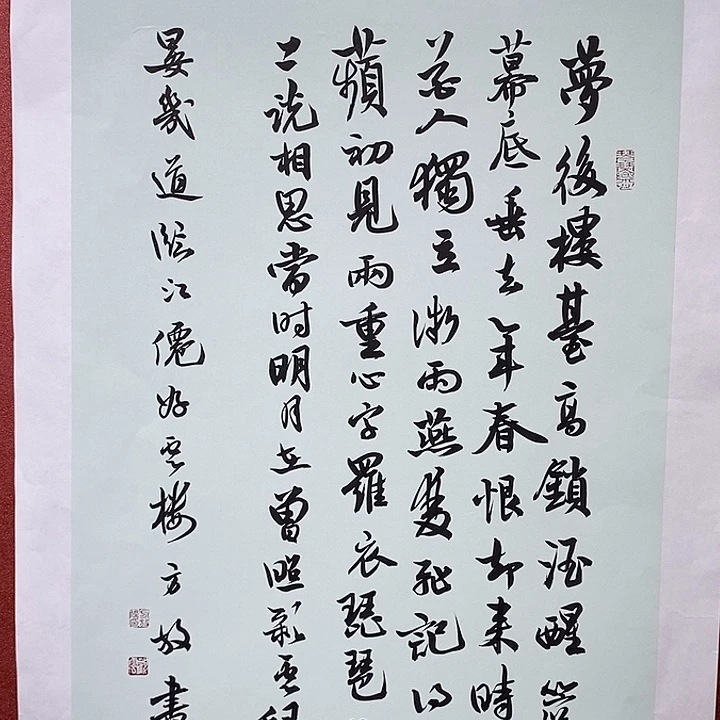 夢後樓臺高鎖酒醒簾
幕底垂去年春恨却来時
花人獨立微雨燕雙飛記得
蘋初見兩重心字羅衣琵琶
上説相思當时明月在曾照彩雲歸
晏幾道臨江僊好雲樓方放書